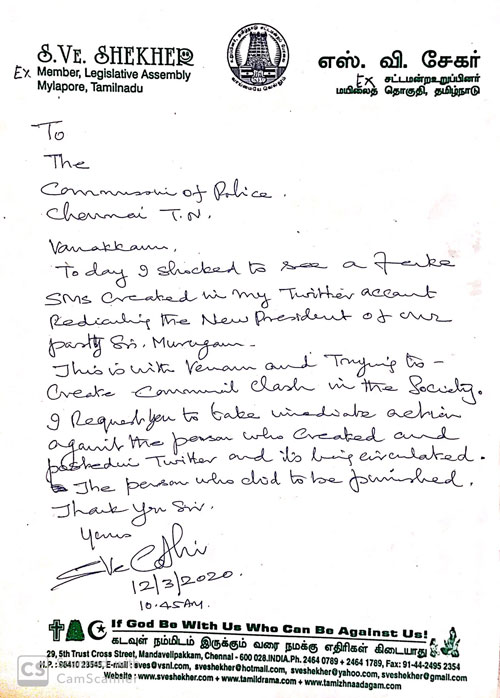 S.VE. SHEKHER
Ex Member, Legislative Assembly
Mylapore, Tamilnadu
எஸ். வி. சேகர்
Ex சட்டமன்றஉறுப்பினர்
மயிலைத் தொகுதி, தமிழ்நாடு
To
The
Commissioni of Police.
Chennai T.N.
Vanakkam,
Today I shocked to see a Fake
SMS Created in my Twitter account
Rediculing the New President of our
party Sri. Murugan.
This is with Venam and Trying to
Create Communil clash in the Society.
I Request you to take imediate action
against the person who created and
posted in Twitter and its being circulated.
The person who did to be punished.
Thank You Sir.
Yours
12/3/2020.
10.45AM.
If God Be With Us Who Can Be Against Us!
கடவுள் நம்மிடம் இருக்கும் வரை நமக்கு எதிரிகள் கிடையாது
29, 5th Trust Cross Street, Mandavelipakkam, Chennai - 600 028.INDIA.Ph. 2464 0789 + 2464 1789, Fax: 91-44-2495 2354
H.P. : 98410 23545, E-mail : sves@vsnl.com, sveshekher@hotmail.com, sveshekher@yahoo.com, sveshekher@gmail.com
Website : www.sveshekher.com + www.tamildrama.com + www.tamizhnaadagam.com
CS CamScanner